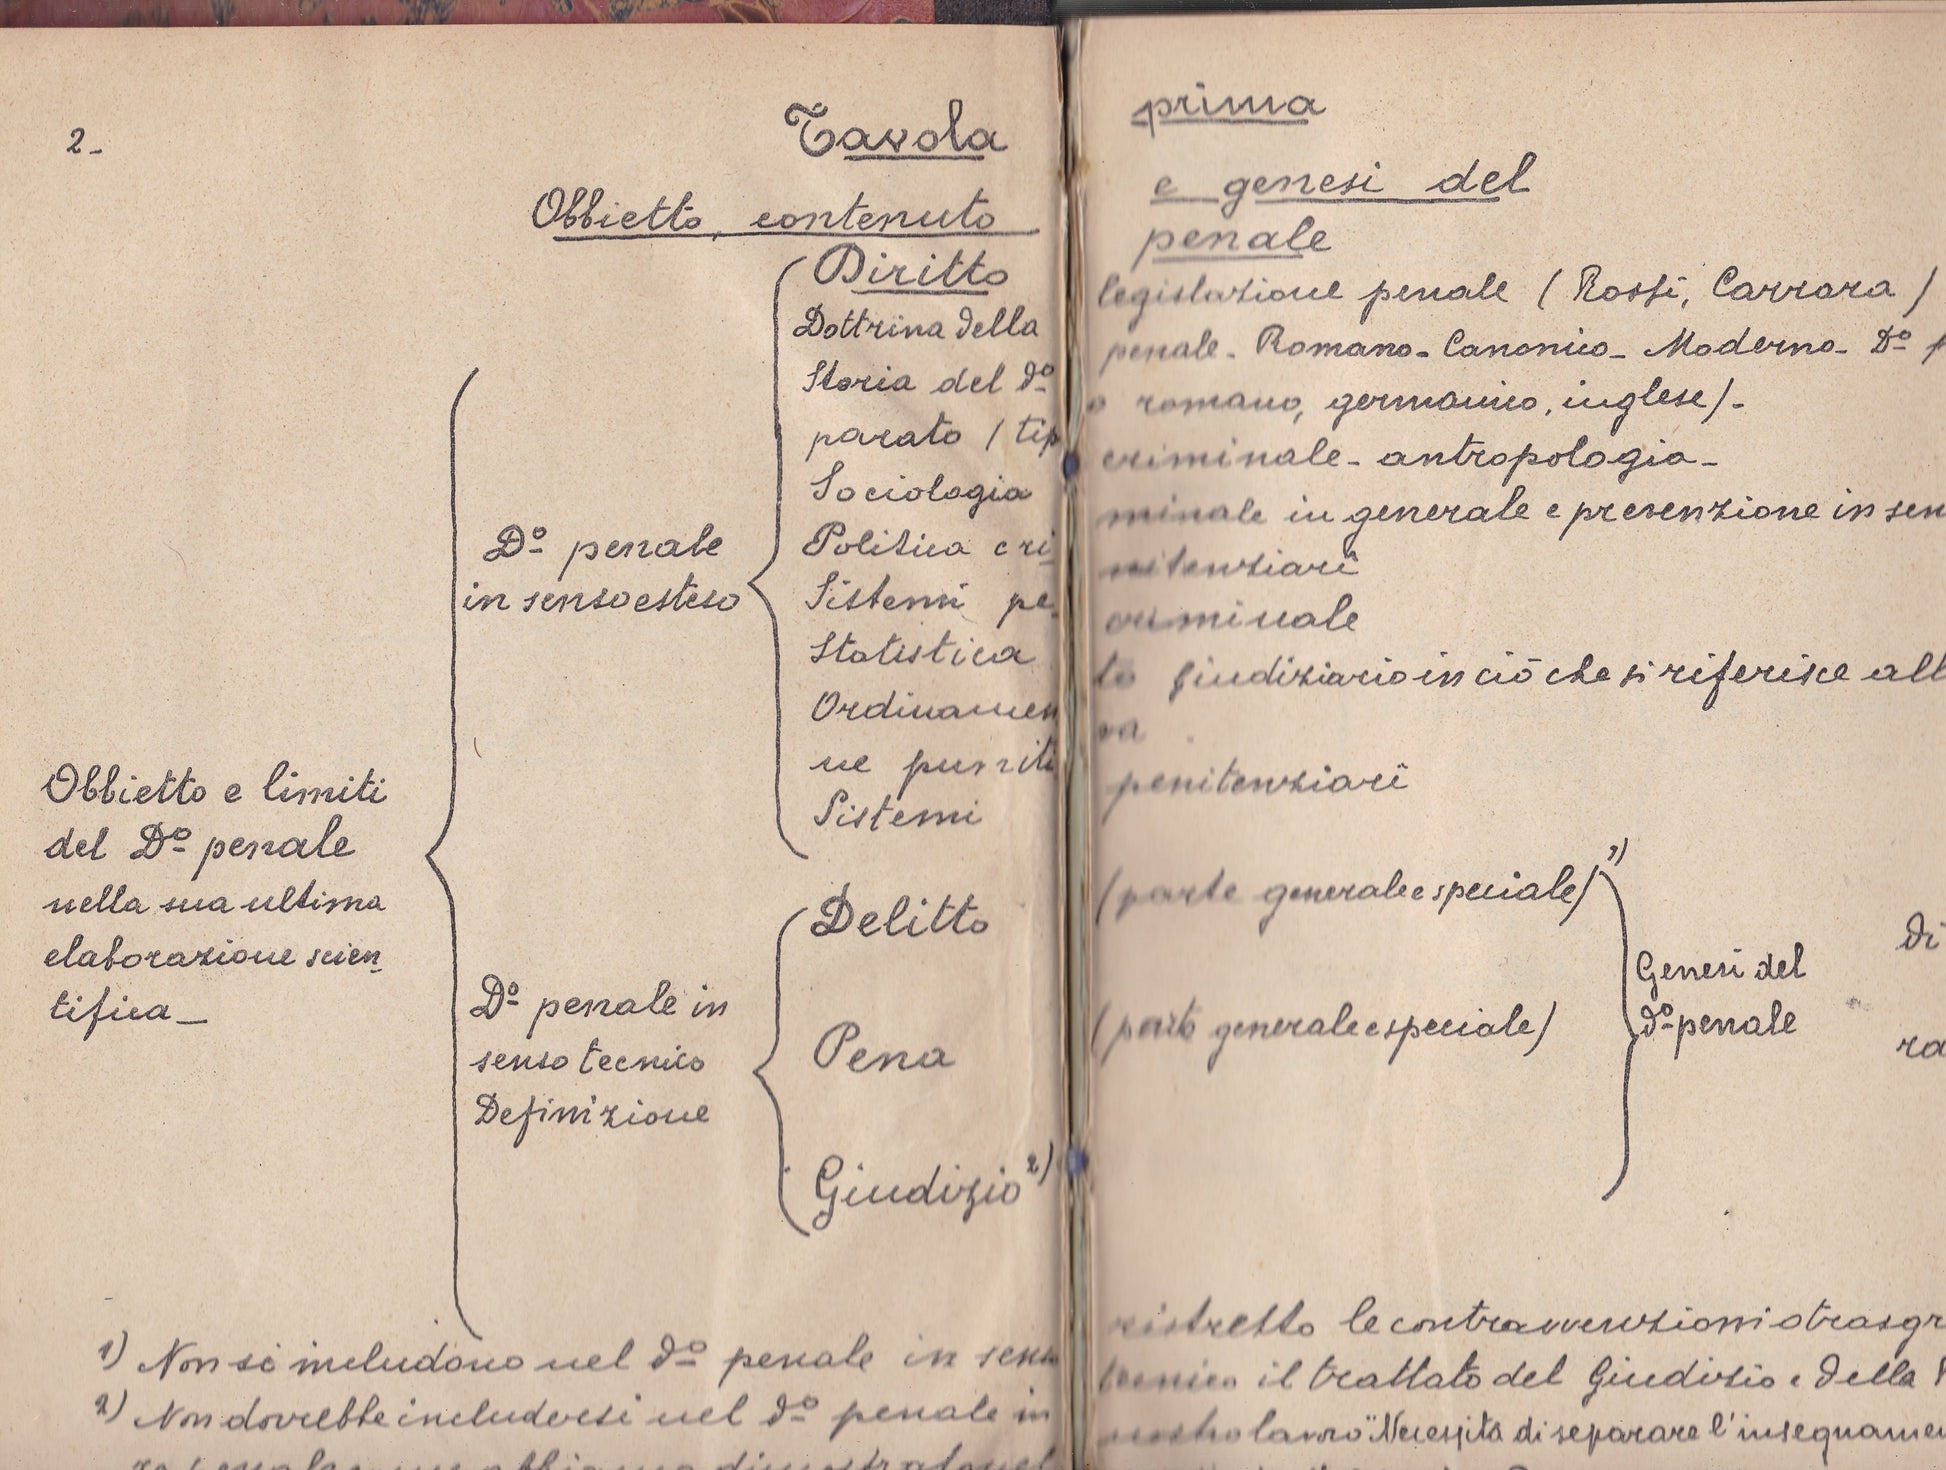 2-
Tavola prima
Obbietto, contenuto e genesi del
Diritto penale
Dottrina della legislazione penale (Rossi, Carrara)
Storia del dº penale - Romano - Canonico - Moderno - Dº
parato (tip o romano, germanico, inglese) -
Sociologia criminale - antropologia -
Politica cri- minale in generale e prevenzione in sen
Dº penale
in senso esteso
Sistemi pe- nitenziarî
Statistica criminale
Ordinamen to giudiziario in ciò che si riferisce all
ne puniti va
Sistemi penitenziarî
Obbietto e limiti
del Dº penale
nella sua ultima
elaborazione scien-
tifica -
Dº penale in
senso tecnico
Definizione
Delitto (parte generale e speciale) 1)
Pena (parte generale e speciale)
Giudizio 2)
Genesi del
dº penale
di
ra
1) Non si includono nel dº penale in senso ristretto le contravvenzioni o trasgr
2) Non dovrebbe includersi nel dº penale in tecnico il trattato del Giudizio e della
lavoro "Necessità di separare l'insegnamen